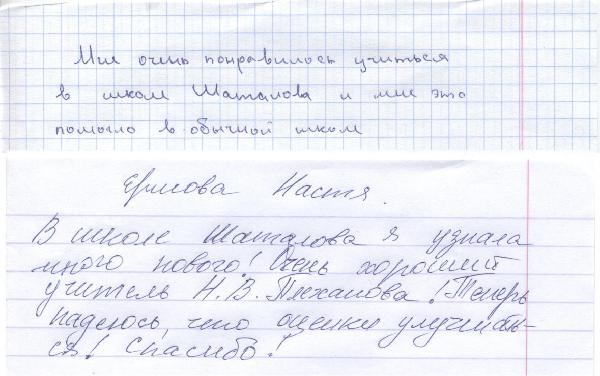 Мне очень понравилось учиться
в школе Шаталова и мне это
помогло в обычной школе
Ермова Настя.
В школе Шаталова я узнала
много нового! Очень хороший
учитель Н.В. Плеханова! Теперь
надеюсь, что оценки улучшать-
ся! Спасибо!